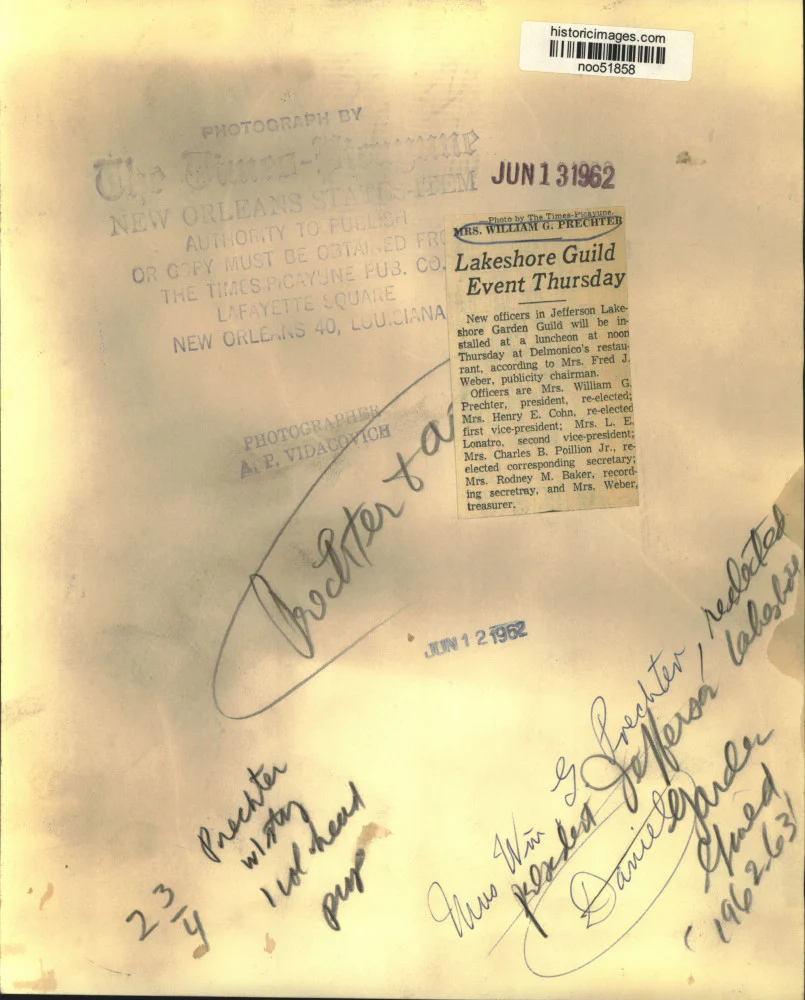 historicimages.com
noo51858
PHOTOGRAPH BY
The Times-Picayune
NEW ORLEANS STATES-ITEM
AUTHORITY TO PUBLISH
OR COPY MUST BE OBTAINED FRO
THE TIMES PICAYUNE PUB. CO.
LAFAYETTE SQUARE
NEW ORLEANS 40, LOUISIANA
JUN 1 3 1962
Photo by The Times-Picayune.
MRS. WILLIAM G. PRECHTER
Lakeshore Guild
Event Thursday
New officers in Jefferson Lake-
shore Garden Guild will be in-
stalled at a luncheon at noon
Thursday at Delmonico's restau-
rant, according to Mrs. Fred J.
Weber, publicity chairman.
Officers are Mrs. William G.
Prechter, president, re-elected;
Mrs. Henry E. Cohn, re-elected
first vice-president; Mrs. L. E.
Lonatro, second vice-president;
Mrs. Charles B. Poillion Jr., re-
elected corresponding secretary;
Mrs. Rodney M. Baker, record-
ing secretray, and Mrs. Weber,
treasurer.
PHOTOGRAPHER
A. P. VIDACOVICH
Prechter + a
JUN 1 2 1962
Prechter
w/story
1 col head
2 3/4
Mrs Wm G Prechter, reelected
president Jefferson Lakeshore
Daniel Garden
Guild
1962-63